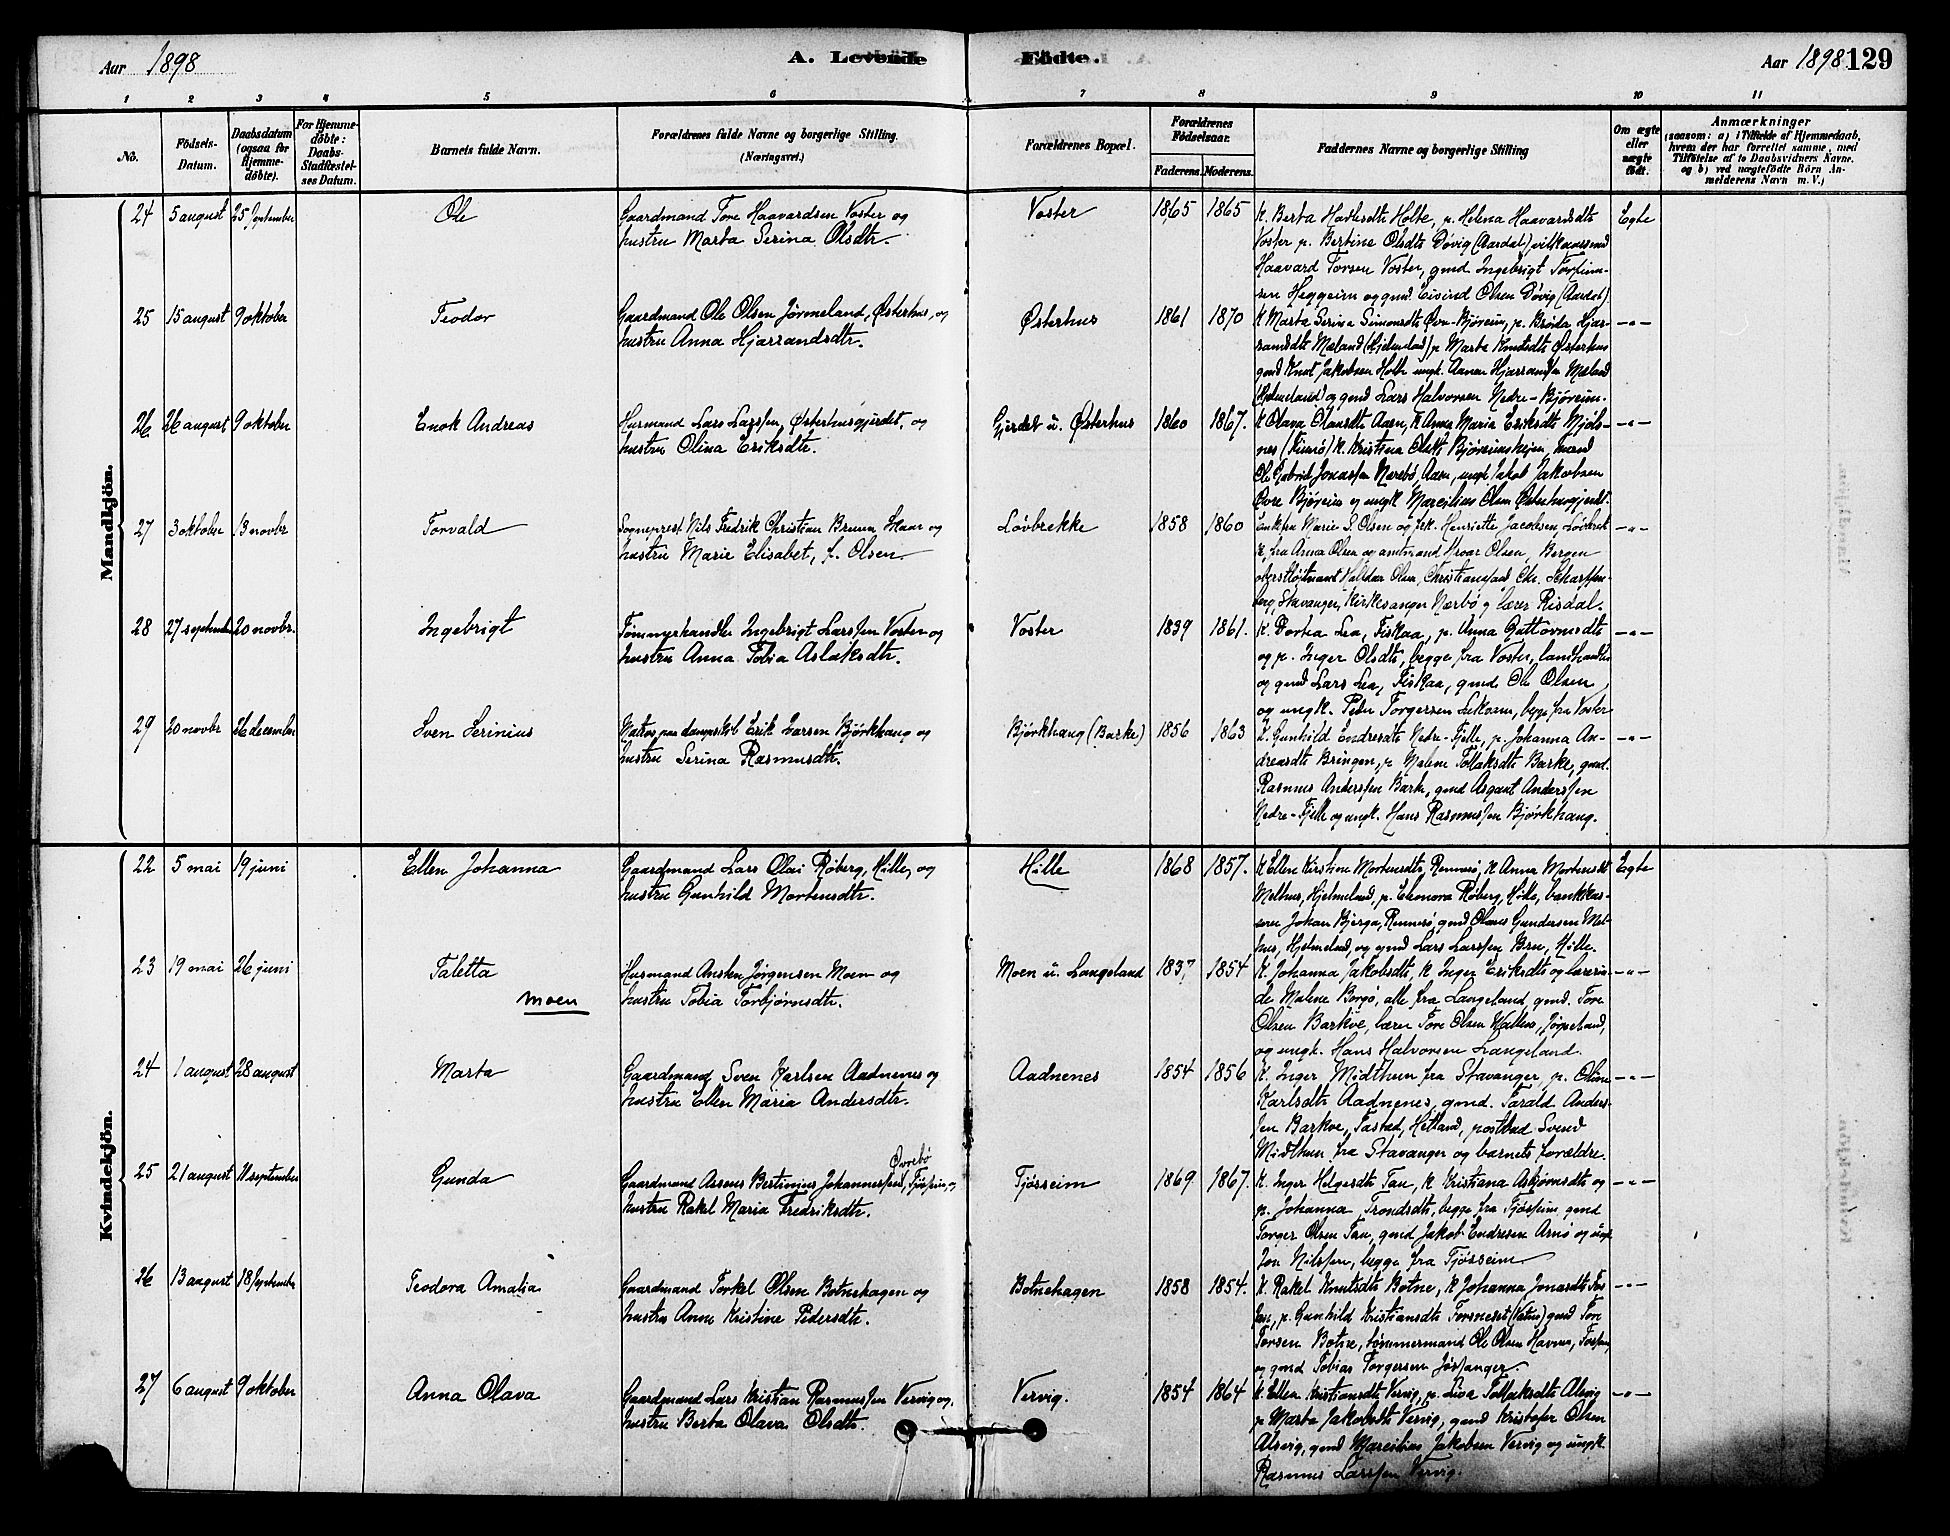 Aar 1898
A. Levende
Fødte.
Aar 1898 129
1 2 3 4 5 6 7 8 9 10 11
No.
Födsels-Datum.
Daabsdatum (ogsaa for Hjemme-döbte).
For Hjemme-döbte: Daabs-Stadfæstelses Datum.
Barnets fulde Navn.
Forældrenes fulde Navne og borgerlige Stilling.
(Næringsvei.)
Forældrenes Bopæl.
Forældrenes Födselsaar.
Faderens. Moderens.
Faddernes Navne og borgerlige Stilling
Om ægte eller uægte födt.
Anmærkninger
(saasom: a) i Tilfælde af Hjemmedaab,
hvem der har forrettet samme, med
Tilföielse af to Daabsvidners Navne.
og b) ved uægtefödte Börn An-
melderens Navn m. V.)
Mandkjön.
24 5 august 25 september Ole Gaardmand Tore Haavardsen Voster og Voster 1865 1865 K. Berta Holte, p. Helena Haavardsdtr Egte
hustru Marta Serina Olsdtr. Voster p. Bertine Olsdtr Døvig (Aardal)
Haavard Torsen Voster, gmd. Ingebrigt Torfinn-
sen Heggeim og gmd. Eivind Olsen Døvig (Aardal)
25 15 august 9 oktober Teodor Gaardmand Ole Olsen Jørmeland, Østerhus, og Østerhus 1861 1870 K Marta Serina Simonsdtr Øvre-Bjøreim, p. Brøda Hjar- -"-
hustru Anna Hjarsandsdtr. sandsdtr Mæland (Hjelmeland) p Marta Knutsdtr Østerhus
gmd Knut Jakobsen Holte ungk. Hjarsandsen Mæland
(Hjelmeland) og gmd Lars Halvorsen Nedre-Bjøreim.
26 26 august 9 oktober Enok Andreas Husmand Lars Larssen, Østerhusgjerdet, og Gjerdet u. Østerhus 1860 1867. K Olava Olausdtr Aasen, K Anna Maria Eriksdtr Mjøls- -"-
hustru Olina Eriksdtr. nes (Finnø) K. Kristina Olsdtr
Ole Gabriel Jonassen Nærebø, Aasen, ungk Jakob Jakobsen
Øvre Bjøreim og ungk Marselius Olsen Østerhusgjerdet.
27 3 oktober 13 novbr Torvald Sogneprest Nils Fredrik Christian Bruun Skaar og Løvbrekke 1858 1860 Enkefru Marie S. Olsen og frk. Henriette Jacobsen, Løvbrek- -"-
hustru Marie Elisabet, f. Olsen k, fru Anna Olsen og amtmand Hroar Olsen, Bergen
oberstløjtnant Halfdan Olsen, Christianssand Chr. Scharffen-
berg, Stavanger, kirkesanger Nærbø og lærer Risdal.
28 27 september 20 novbr. Ingebrigt Tømmerhandler Ingebrigt Larssen Voster og Voster 1839 1861. K. Dortea Lea, Fiskaa, p. Anna Guttormsdtr -"-
hustru Anna Tobia Aslaksdtr. og p. Inger Olsdtr, begge fra Voster, landhandler
og gmd Lars Lea, Fiskaa, gmd. Ole Olsen
og ungk. Peder Torgersen begge fra Voster
29 20 novbr 26 december Sven Serinius Matros paa dampskib Erik Larsen Bjørkhaug og Bjørkhaug (Barke) 1856 1863 K. Gunhild Endresdtr Nedre-Fjelle, p. Johanna An- -"-
hustru Serina Rasmusdtr. dreasdtr Bringen, p. Malene Tollaksdtr Barke, gmd.
Rasmus Anderssen Barke, gmd Asgaut Anderssen
Nedre-Fjelle og ungk. Hans Rasmussen Bjørkhaug.
Kvindekjön.
22 5 mai 19 juni Ellen Johanna Gaardmand Lars Olai Røberg, Hille, og Hille 1868 1857. K Ellen Kirstine Mortensdtr, Rennesø, K Anna Mortensdtr Egte
hustru Gunhild Mortensdtr. Melhus, Hjelmeland, p. Eleonora Røberg, Hille, bankkas-
serer Johan Bjerga, Rennesø, gmd Olaus Gundersen Mel-
hus, Hjelmeland, og gmd Lars Larssen Bru, Hille.
23 19 mai 26 juni Taletta Husmand Jørgensen Moen og Moen u. Langeland 1837 1854 K. Johanna Jakobsdtr, K Inger Eriksdtr og lærerin- -"-
moen hustru Tobia Torbjørnsdtr. de Malene Borgø, alle fra Langeland, gmd. Tore
Olsen Barkve, lærer Tore Olsen Jørpeland,
og ungk. Hans Halvorsen Langeland.
24 1 august 28 august Marta Gaardmand Sven Karlsen Aadnenes og Aadnenes 1854 1856 K. Inger Midthun fra Stavanger, p. Oline -"-
hustru Ellen Maria Andersdtr. Karlsdtr Aadnenes, gmd. Tarald Anders-
sen Barkve, Tastad, Hetland, postbud Svend
Midthun fra Stavanger og barnets forældre.
25 21 august 11 september Gunda Gaardmand Bertinius Johannessen Øvrebø, Tjøsseim, og Tjøsseim 1869 1867. K. Inger Helgesdtr Tau, K Kristiana Asbjørnsdtr og -"-
hustru Rakel Maria Fredriksdtr. p. Johanna Trondsdtr, begge fra Tjøsseim, gmd
Torger Olsen Tau, gmd Jakob Endresen Arnø og ungk
Jon Nilssen, begge fra Tjøsseim
26 13 august 18 september Teodora Amalia Gaardmand Torkel Olsen Botnehagen og Botnehagen 1858 1854. K. Rakel Knutsdtr Botne, K Johanna Jonasdtr -"-
hustru Anne Kristine Pedersdtr. p. Gunhild Kristiansdtr Forsneset gmd Tore
Torsen Botne, tømmermand Ole Olsen
og gmd Tobias Torgersen Jøssanger
27 6 august 9 oktober Anna Olava Gaardmand Lars Kristian Rasmussen Vervig og Vervig. 1854 1864 K. Ellen Kristiansdtr Vervig, p. Tollaksdtr Alsvig -"-
hustru Berta Olava Olsdtr. p Marta Jakobsdtr Vervig, gmd Kristofer Olsen
Alsvig, gmd Marselius Jakobsen Vervig og ungk.
Rasmus Larssen Vervig.